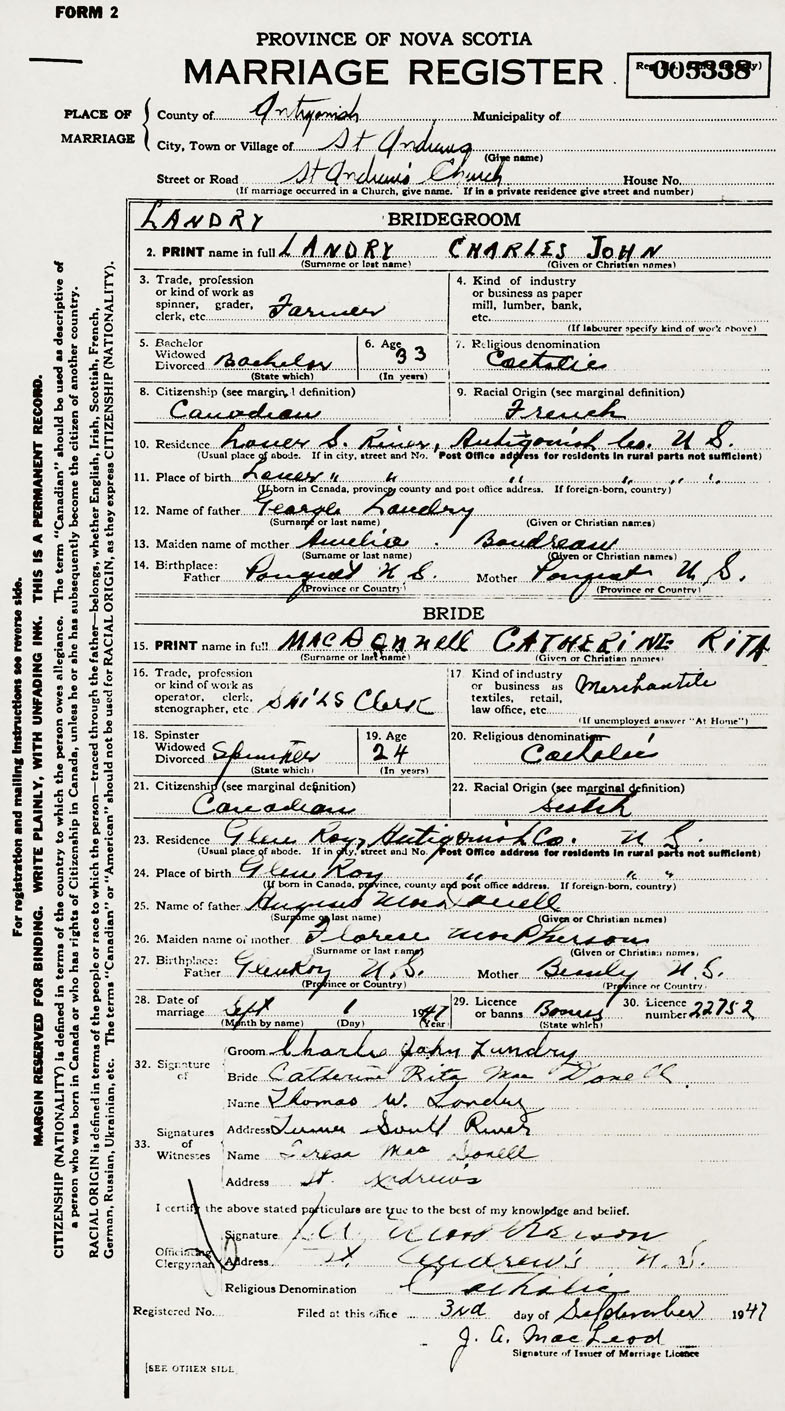 FORM 2
PROVINCE OF NOVA SCOTIA
MARRIAGE REGISTER
005338
PLACE OF MARRIAGE
County of Antigonish Municipality of
City, Town or Village of St Andrews
(Give name)
Street or Road St Andrew's Church House No.
(If marriage occurred in a Church, give name. If in a private residence give street and number)
LANDRY BRIDEGROOM
2. PRINT name in full LANDRY CHARLES JOHN
(Surname or last name) (Given or Christian names)
3. Trade, profession or kind of work as spinner, grader, clerk, etc. Farmer
4. Kind of industry or business as paper mill, lumber, bank, etc.
(If labourer specify kind of work above)
5. Bachelor Widowed Divorced Bachelor
(State which)
6. Age 33
(In years)
7. Religious denomination
Catholic
8. Citizenship (see marginal definition)
Canadian
9. Racial Origin (see marginal definition)
French
10. Residence Lower S. River, Antigonish Co. N.S.
(Usual place of abode. If in city, street and No. Post Office address for residents in rural parts not sufficient)
11. Place of birth Lower " " " " " "
(If born in Canada, province, county and post office address. If foreign-born, country)
12. Name of father George Landry
(Surname or last name) (Given or Christian names)
13. Maiden name of mother Amelia Boudreau
(Surname or last name) (Given or Christian names)
14. Birthplace: Father Pomquet N.S. Mother Pomquet N.S.
(Province or Country) (Province or Country)
BRIDE
15. PRINT name in full MACDONNELL CATHERINE RITA
(Surname or last name) (Given or Christian names)
16. Trade, profession or kind of work as operator, clerk, stenographer, etc SAILS Clerk
17 Kind of industry or business as textiles, retail, law office, etc. Merchantile
(If unemployed answer "At Home")
18. Spinster Widowed Divorced Spinster
(State which)
19. Age 24
(In years)
20. Religious denomination
Catholic
21. Citizenship (see marginal definition)
Canadian
22. Racial Origin (see marginal definition)
Scotch
23. Residence Glen Roy, Antigonish Co. N.S.
(Usual place of abode. If in city, street and No. Post Office address for residents in rural parts not sufficient)
24. Place of birth Glen Roy " " " "
(If born in Canada, province, county and post office address. If foreign-born, country)
25. Name of father Angus MacDonell
(Surname or last name) (Given or Christian names)
26. Maiden name of mother MacPherson
(Surname or last name) (Given or Christian names)
27. Birthplace: Father GlenRoy N.S. Mother N.S.
(Province or Country) (Province or Country)
28. Date of marriage Sept 1 1947
(Month by name) (Day) (Year)
29. Licence or banns Banns
(State which)
30. Licence number 22752
32. Signature of
Groom Charles John Landry
Bride Catherine Rita Mac Donell
33. Signatures of Witnesses
Name Thomas W. Landry
Address South River
Name Teresa Mac Donell
Address St. Andrew's
I certify the above stated particulars are true to the best of my knowledge and belief.
Officiating Clergyman
Signature MacPherson
Address St. Andrew's N.S.
Religious Denomination Catholic
Registered No. Filed at this office 3rd day of September 1947
J. A. MacLeod
Signature of Issuer of Marriage Licence
[SEE OTHER SIDE]
For registration and mailing instructions see reverse side.
MARGIN RESERVED FOR BINDING. WRITE PLAINLY, WITH UNFADING INK. THIS IS A PERMANENT RECORD.
CITIZENSHIP (NATIONALITY) is defined in terms of the country to which the person owes allegiance. The term "Canadian" should be used as descriptive of
a person who was born in Canada or who has rights of Citizenship in Canada, unless he or she has subsequently become the citizen of another country.
RACIAL ORIGIN is defined in terms of the people or race to which the person—traced through the father—belongs, whether English, Irish, Scottish, French,
German, Russian, Ukrainian, etc. The terms "Canadian" or "American" should not be used for RACIAL ORIGIN, as they express CITIZENSHIP (NATIONALITY).